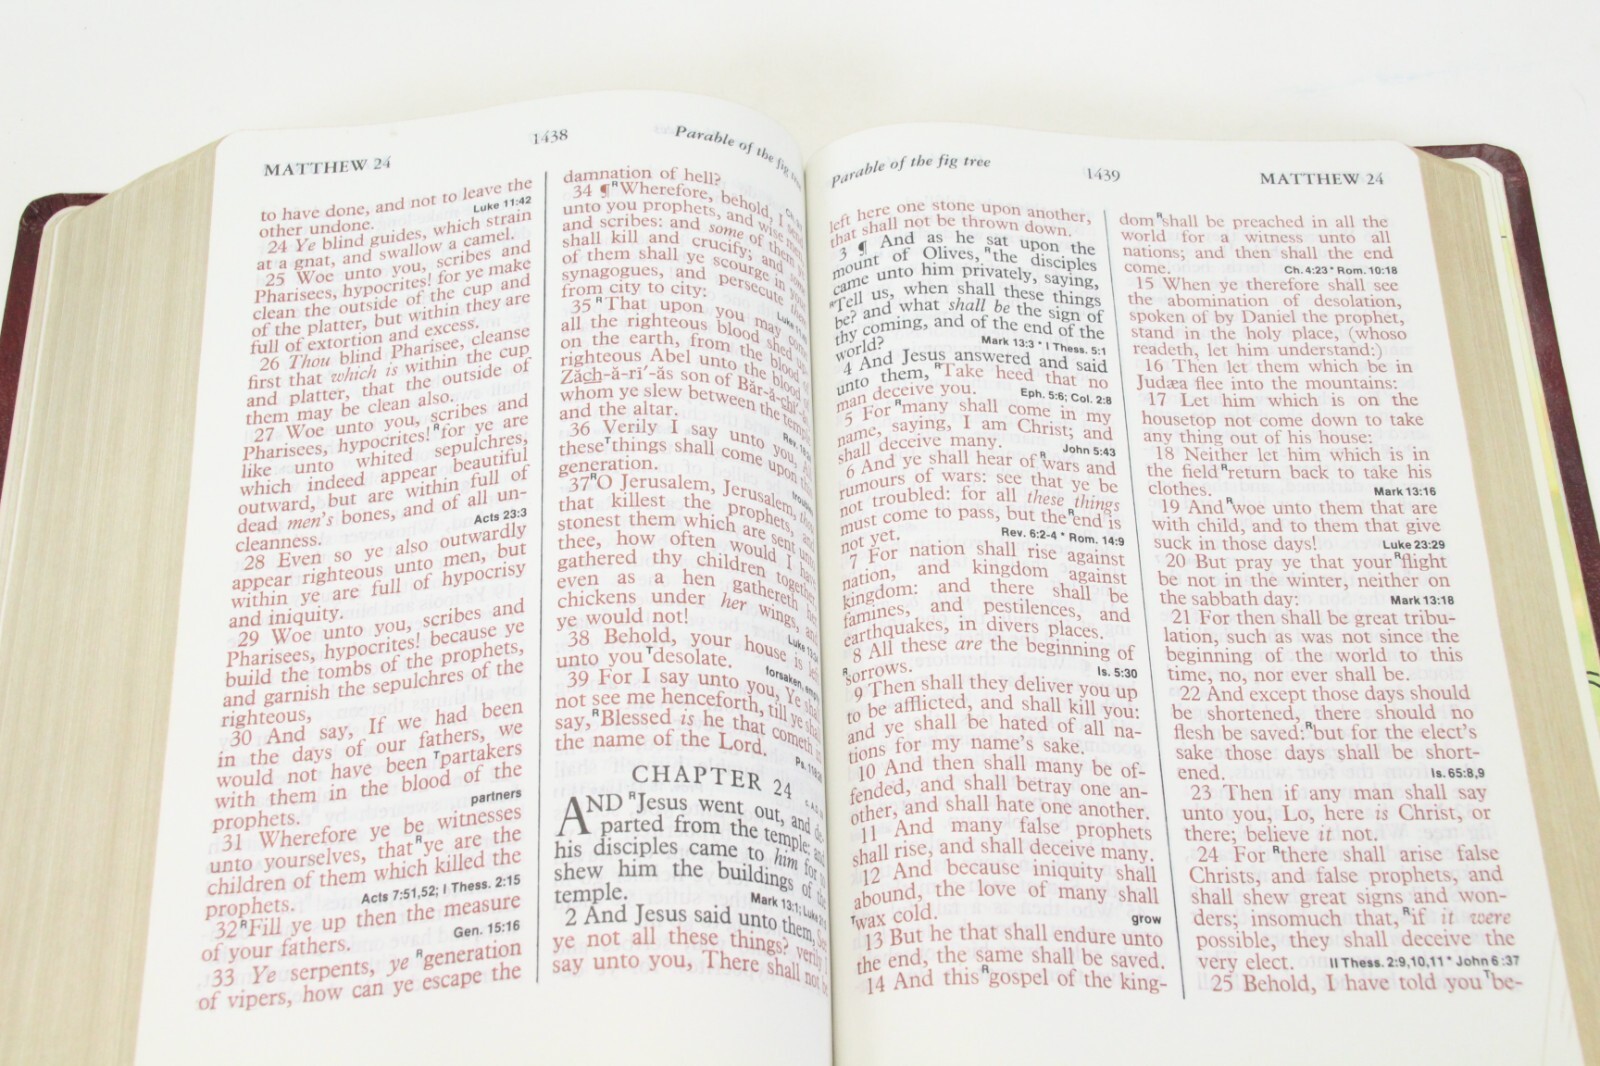 MATTHEW 24
1438
Parable of the fig
to have done, and not to leave the
other undone. Luke 11:42
24 Ye blind guides, which strain
at a gnat, and swallow a camel.
25 Woe unto you, scribes and
Pharisees, hypocrites! for ye make
clean the outside of the cup and
of the platter, but within they are
full of extortion and excess.
26 Thou blind Pharisee, cleanse
first that which is within the cup
and platter, that the outside of
them may be clean also.
27 Woe unto you, scribes and
Pharisees, hypocrites! R for ye are
like unto whited sepulchres,
which indeed appear beautiful
outward, but are within full of
dead men's bones, and of all un-
cleanness. Acts 23:3
28 Even so ye also outwardly
appear righteous unto men, but
within ye are full of hypocrisy
and iniquity.
29 Woe unto you, scribes and
Pharisees, hypocrites! because ye
build the tombs of the prophets,
and garnish the sepulchres of the
righteous,
30 And say, If we had been
in the days of our fathers, we
would not have been T partakers
with them in the blood of the
prophets. partners
31 Wherefore ye be witnesses
unto yourselves, that R ye are the
children of them which killed the
prophets. Acts 7:51,52; I Thess. 2:15
32 R Fill ye up then the measure
of your fathers. Gen. 15:16
33 Ye serpents, ye R generation
of vipers, how can ye escape the
damnation of hell?
34 ¶ R Wherefore, behold, I send
unto you prophets, and wise men,
and scribes: and some of them ye
shall kill and crucify; and some
of them shall ye scourge in your
synagogues, and persecute them
from city to city:
35 R That upon you may come
all the righteous blood shed upon
on the earth, from the blood of
righteous Abel unto the blood of
Zăch-ă-ri′-ăs son of Băr-ă-chi′-ăs,
whom ye slew between the temple
and the altar.
36 Verily I say unto you, All
these T things shall come upon this
generation.
37 R O Jerusalem, Jerusalem, thou
that killest the prophets, and
stonest them which are sent unto
thee, how often would I have
gathered thy children together,
even as a hen gathereth her
chickens under her wings, and
ye would not!
38 Behold, your house is left
unto you T desolate. forsaken, empty
39 For I say unto you, Ye shall
not see me henceforth, till ye shall
say, R Blessed is he that cometh in
the name of the Lord.
CHAPTER 24
AND R Jesus went out, and de-
parted from the temple: and
his disciples came to him for to
shew him the buildings of the
temple. Mark 13:1; Luke
2 And Jesus said unto them, See
ye not all these things? verily I
say unto you, There shall not be
Parable of the fig tree
1439
MATTHEW 24
left here one stone upon another,
that shall not be thrown down.
3 ¶ And as he sat upon the
mount of Olives, R the disciples
came unto him privately, saying,
R Tell us, when shall these things
be? and what shall be the sign of
thy coming, and of the end of the
world? Mark 13:3 * I Thess. 5:1
4 And Jesus answered and said
unto them, R Take heed that no
man deceive you. Eph. 5:6; Col. 2:8
5 For R many shall come in my
name, saying, I am Christ; and
shall deceive many. John 5:43
6 And ye shall hear of R wars and
rumours of wars: see that ye be
not troubled: for all these things
must come to pass, but the R end is
not yet. Rev. 6:2-4 * Rom. 14:9
7 For nation shall rise against
nation, and kingdom against
kingdom: and there shall be
famines, and pestilences, and
earthquakes, in divers places.
8 All these are the beginning of
R sorrows. Is. 5:30
9 Then shall they deliver you up
to be afflicted, and shall kill you:
and ye shall be hated of all na-
tions for my name's sake.
10 And then shall many be of-
fended, and shall betray one an-
other, and shall hate one another.
11 And many false prophets
shall rise, and shall deceive many.
12 And because iniquity shall
abound, the love of many shall
T wax cold. grow
13 But he that shall endure unto
the end, the same shall be saved.
14 And this R gospel of the king-
dom R shall be preached in all the
world for a witness unto all
nations; and then shall the end
come. Ch. 4:23 * Rom. 10:18
15 When ye therefore shall see
the abomination of desolation,
spoken of by Daniel the prophet,
stand in the holy place, (whoso
readeth, let him understand:)
16 Then let them which be in
Judæa flee into the mountains:
17 Let him which is on the
housetop not come down to take
any thing out of his house:
18 Neither let him which is in
the field R return back to take his
clothes. Mark 13:16
19 And R woe unto them that are
with child, and to them that give
suck in those days! Luke 23:29
20 But pray ye that your R flight
be not in the winter, neither on
the sabbath day: Mark 13:18
21 For then shall be great tribu-
lation, such as was not since the
beginning of the world to this
time, no, nor ever shall be.
22 And except those days should
be shortened, there should no
flesh be saved: R but for the elect's
sake those days shall be short-
ened. Is. 65:8,9
23 Then if any man shall say
unto you, Lo, here is Christ, or
there; believe it not.
24 For R there shall arise false
Christs, and false prophets, and
shall shew great signs and won-
ders; insomuch that, R if it were
possible, they shall deceive the
very elect. II Thess. 2:9,10,11 * John 6:37
25 Behold, I have told you T be-